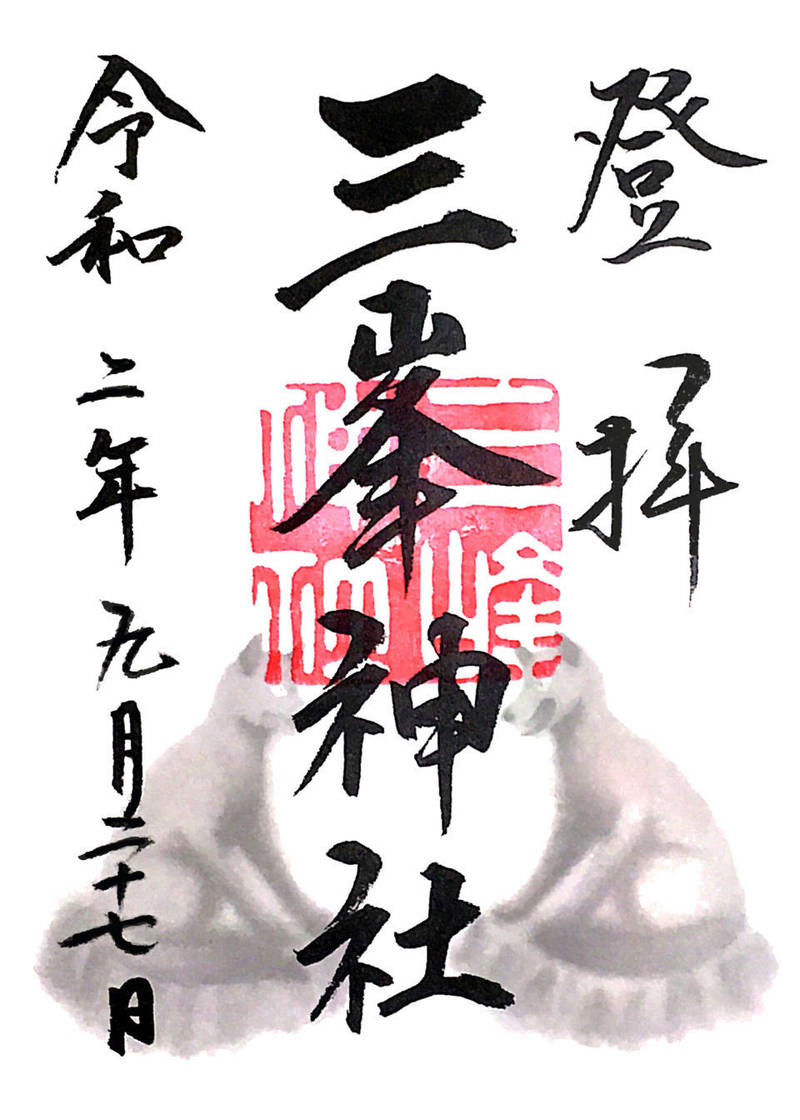 登拝
三峯神社
令和二年九月二十七日